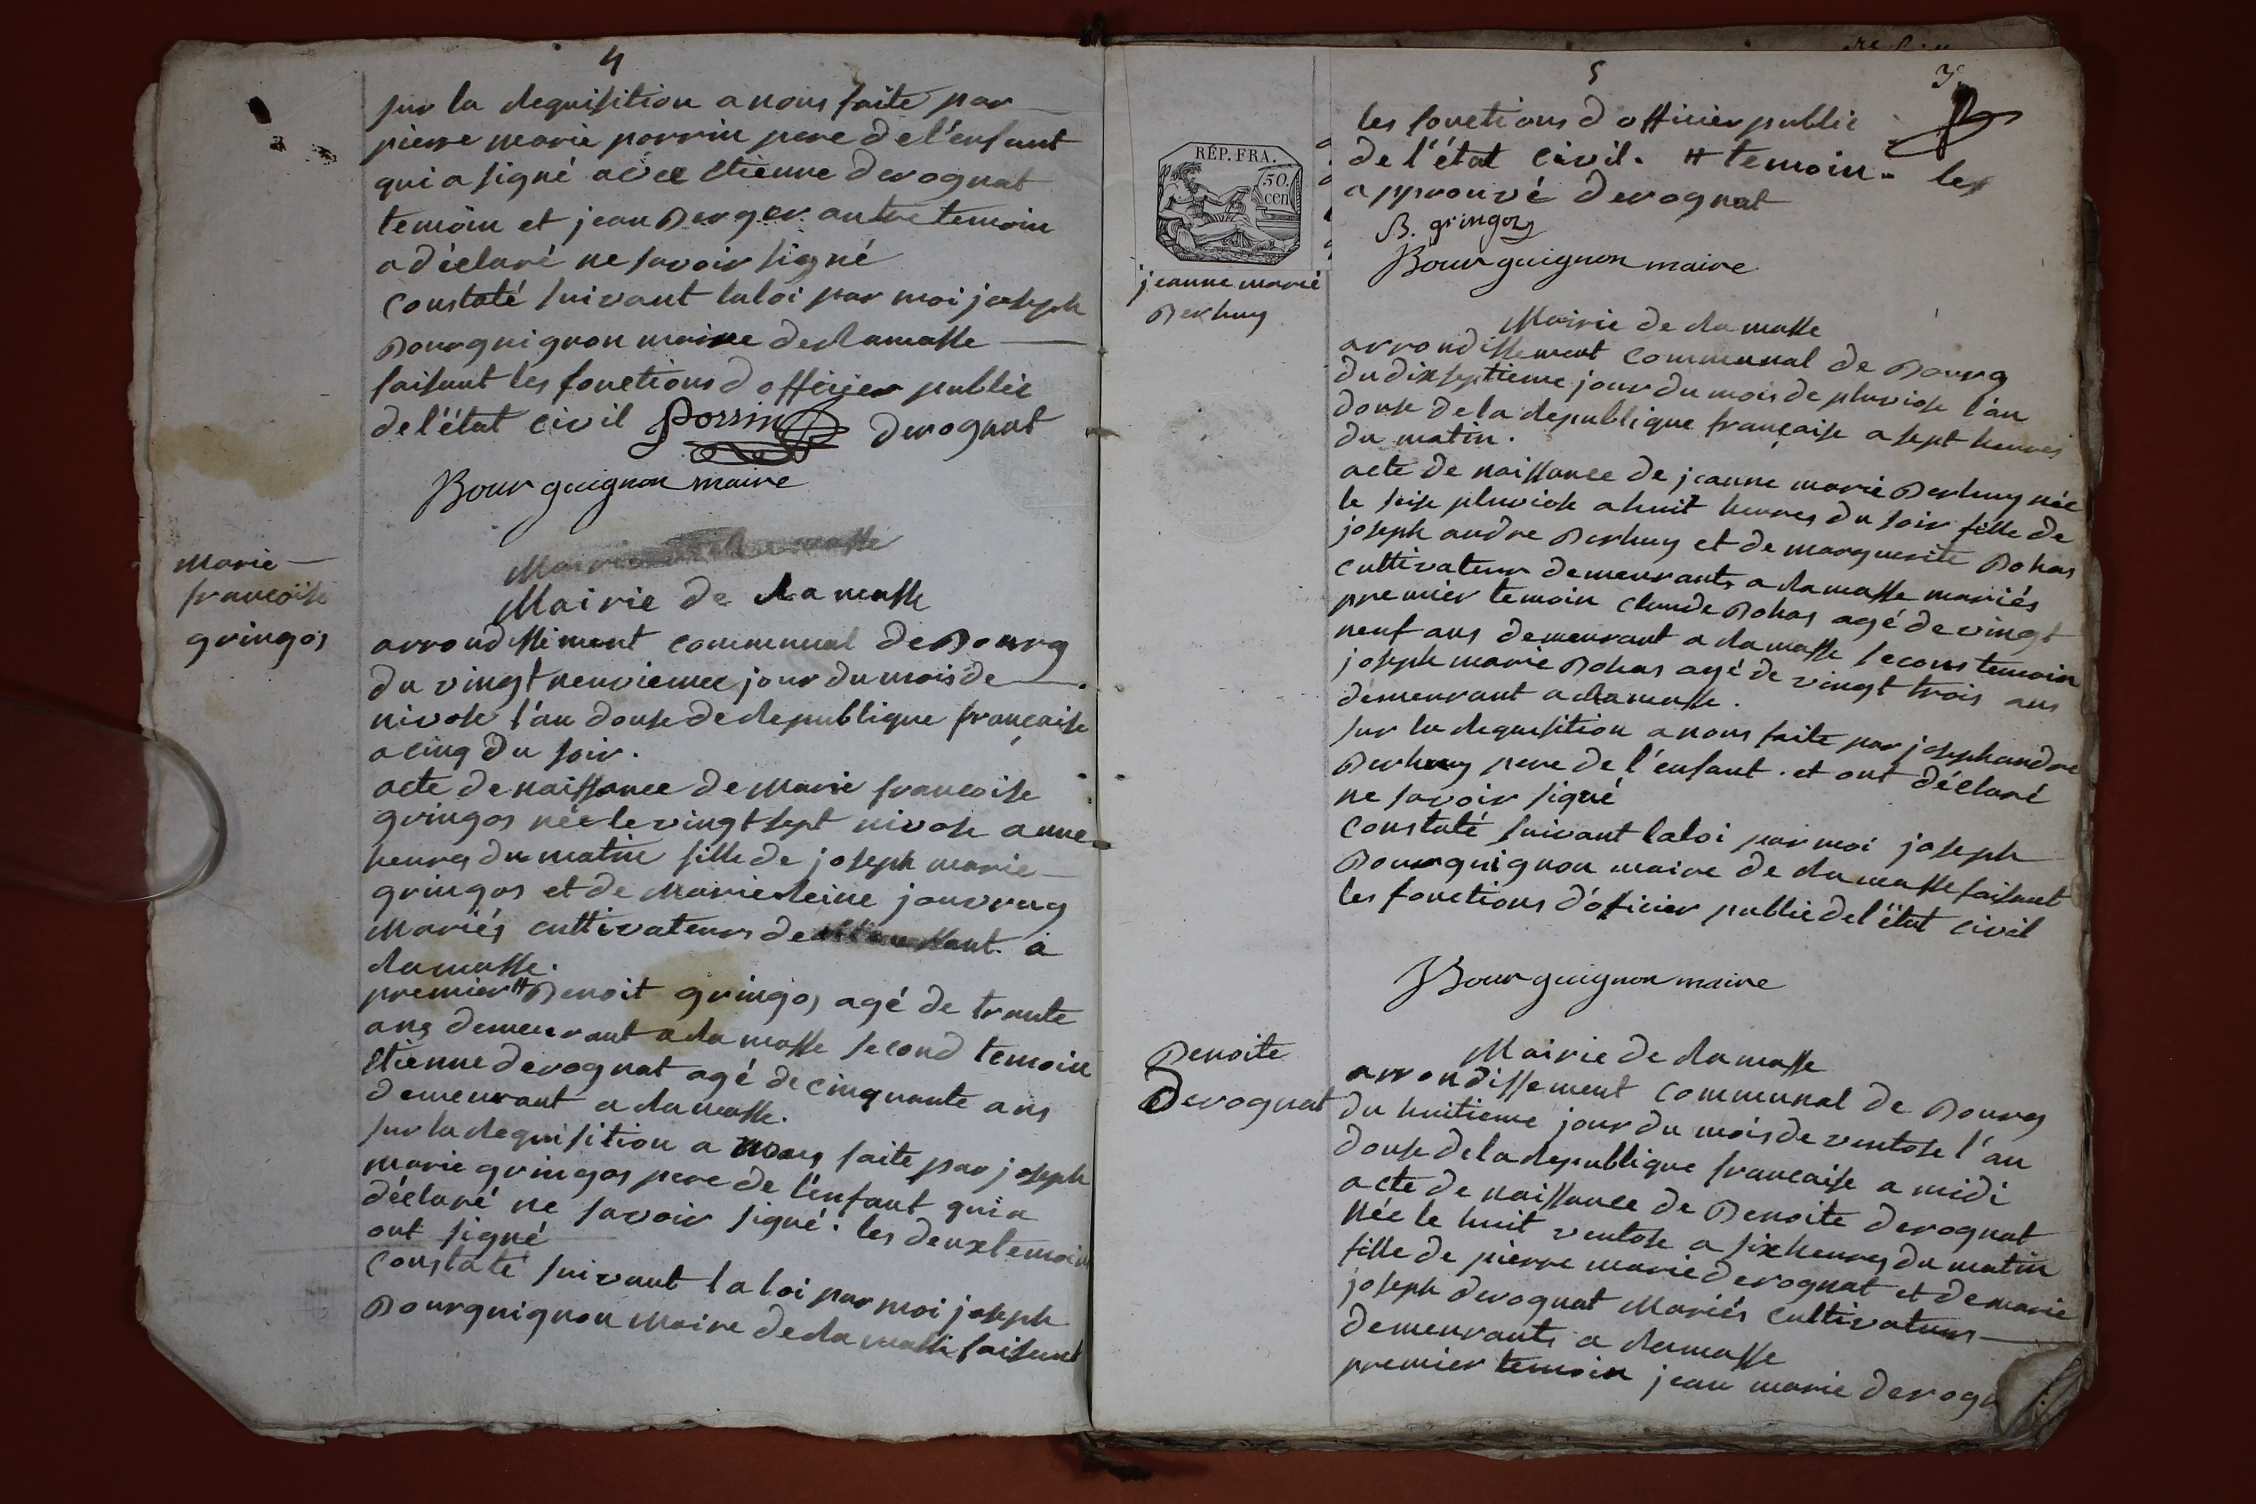 4
sur la requisition a nous faite par
pierre marie porrin pere de l'enfant
qui a signé avec etienne derognat
temoin et jean Berger autre temoin
a déclaré ne savoir signé
constaté suivant la loi par moi joseph
Bourguignon maire de ramasse
faisant les fonctions d officier public
de l'état civil Porrin derognat
Bourguignon maire
Marie
françoise
gringoz
Mairie de Ramasse
Mairie de Ramasse
arrondissiment communal de Bourg
du vingt neuvieme jour du mois de
nivose l'an douse de republique française
a cinq du soir.
acte de naissance de Marie françoise
gringos née le vingt sept nivose a une
heures du matin fille de joseph marie
gringos et de Marie Reine jouvray
Mariés cultivateurs à
Ramasse.
premier # Benoit gringos agé de trante
ans demeurant a Ramasse second temoin
etienne derognat agé de cinquante ans
demeurant a Ramasse.
sur la requisition a nous faite par joseph
marie gringos pere de l'enfant qui a
déclaré ne savoir signé. les deux temoins
ont signé
constaté suivant la loi par moi joseph
Bourguignon Maire de Ramasse faisant
5
3
les fonctions d officier public
de l'état civil. # temoin. les
approuvé derognat
B. gringoz
Bourguignon maire
RÉP. FRA.
50.
cen
jeanne marie
Berhuy
Mairie de Ramasse
arrondissement communal de Bourg
du dixseptieme jour du mois de pluviose l'an
douse de la republique française a sept heures
du matin.
acte de naissance de jeanne marie Berhuy née
le seise pluviose a huit heures du soir fille de
joseph andre Berhuy et de marguerite Bohas
cultivateurs demeurants a Ramasse mariés
premier temoin claude Bohas agé de vingt
neuf ans demeurant a Ramasse second temoin
joseph marie Bohas agé de vingt trois ans
demeurant a Ramasse.
sur la requisition a nous faite par joseph andre
Berhuy pere de l'enfant. et ont déclaré
ne savoir signé
constaté suivant la loi par moi joseph
Bourguignon maire de Ramasse faisant
les fonctions d'oficier public de l'état civil
Bourguignon maire
Benoite
Derognat
Mairie de Ramasse
arrondissement communal de Bourg
du huitieme jour du mois de ventose l'an
douse de la republique française a midi
acte de naissance de Benoite derognat
née le huit ventose a six heures du matin
fille de pierre marie derognat et de marie
joseph derognat Mariés cultivateurs
demeurants a Ramasse
premier temoin jean marie derogn